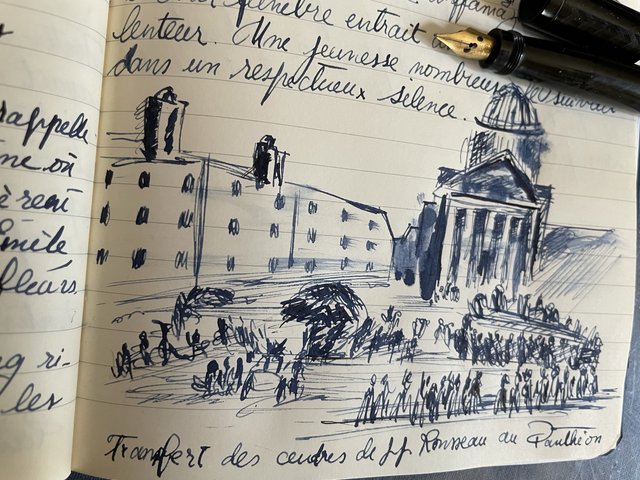 funèbre entrait
lenteur. Une jeunesse nombreuse la suivait
dans un respectueux silence.
rappelle
Émile
fleurs
les
Transfert des cendres de JJ Rousseau au Panthéon